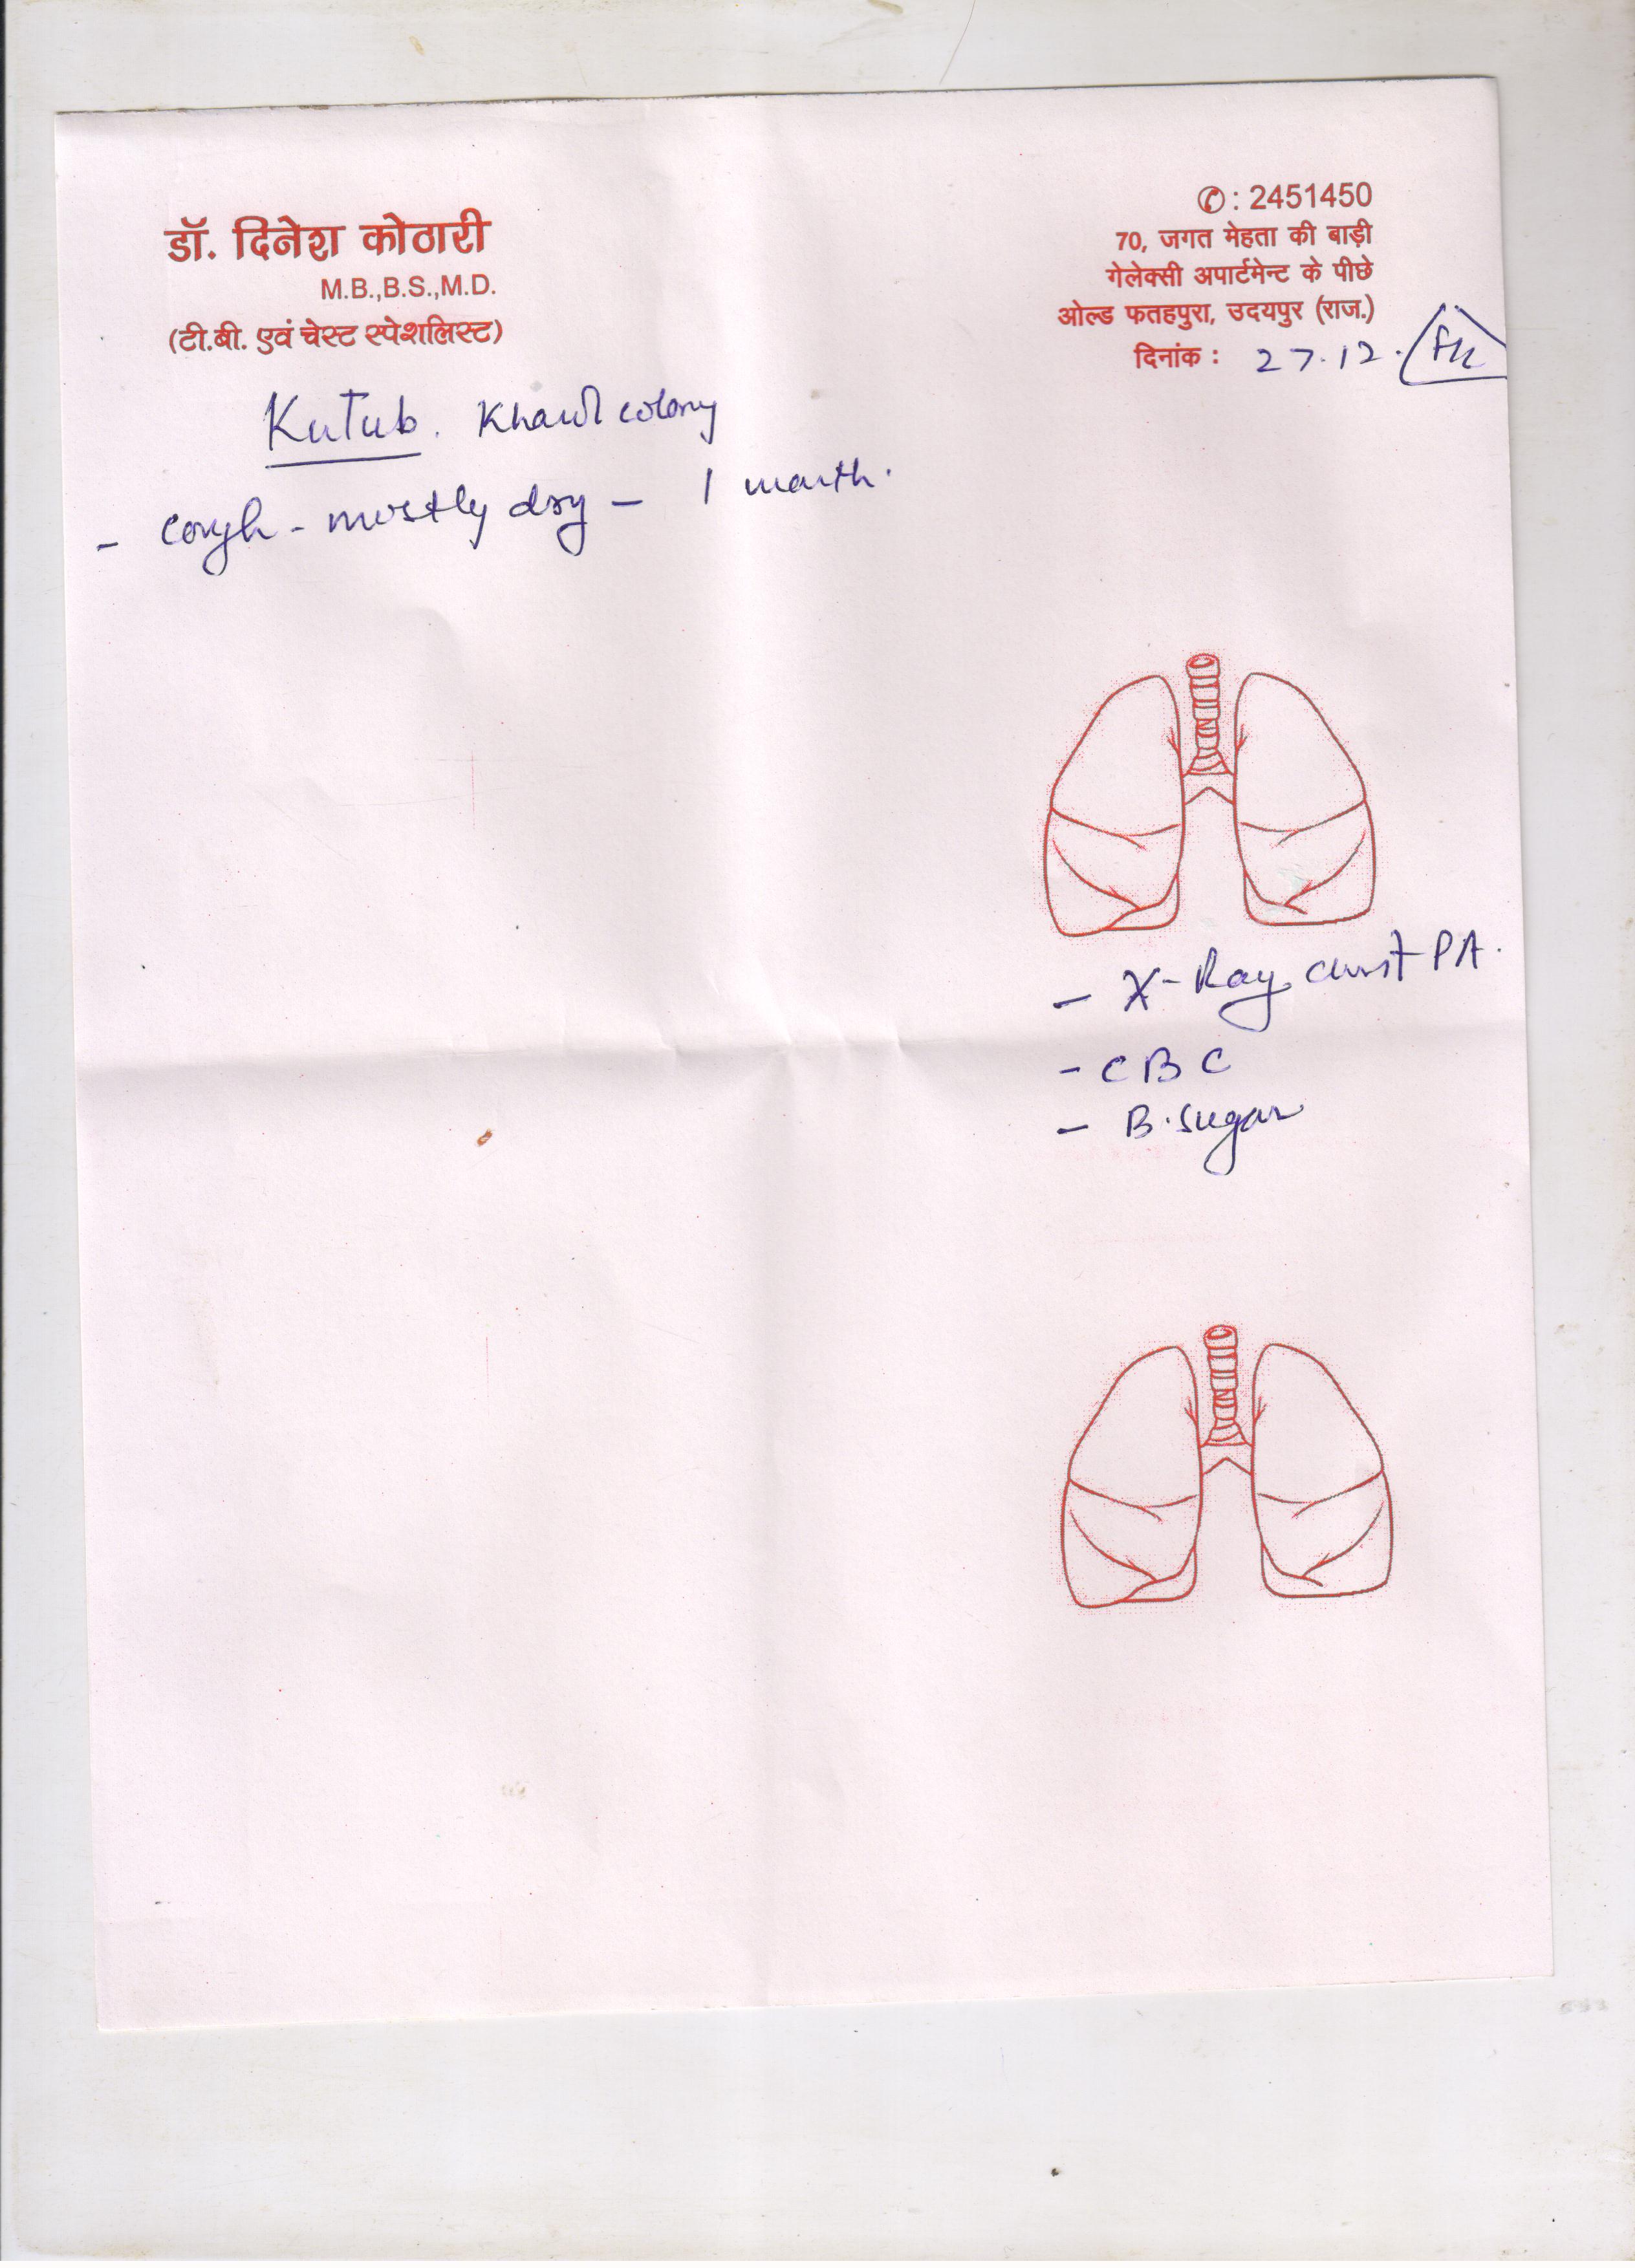 डॉ. दिनेश कोठारी
M.B.,B.S.,M.D.
(टी.बी. एवं चेस्ट स्पेशलिस्ट)
✆ : 2451450
70, जगत मेहता की बाड़ी
गेलेक्सी अपार्टमेन्ट के पीछे
ओल्ड फतहपुरा, उदयपुर (राज.)
दिनांक : 27.12.
Kutub. colony
- cough - mostly dry - 1 month.
- X-Ray chest PA.
- CBC
- B.sugar